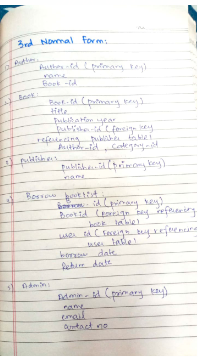 3rd Normal Form:
1) Author:
Author-id (primary key)
name
Book-id
2) Book:
Book-id (primary key)
title
Publication year
Publisher-id (foreign key
referencing publisher table)
Author-id, Category-id
3) publisher:
publisher-id (primary key)
name
4) Borrow
-id (primary key)
Book id (foreign key referencing
book table)
user id (foreign key referencing
user table)
borrow date
Return date
5) Admin:
Admin-id (primary key)
name
email
contact no